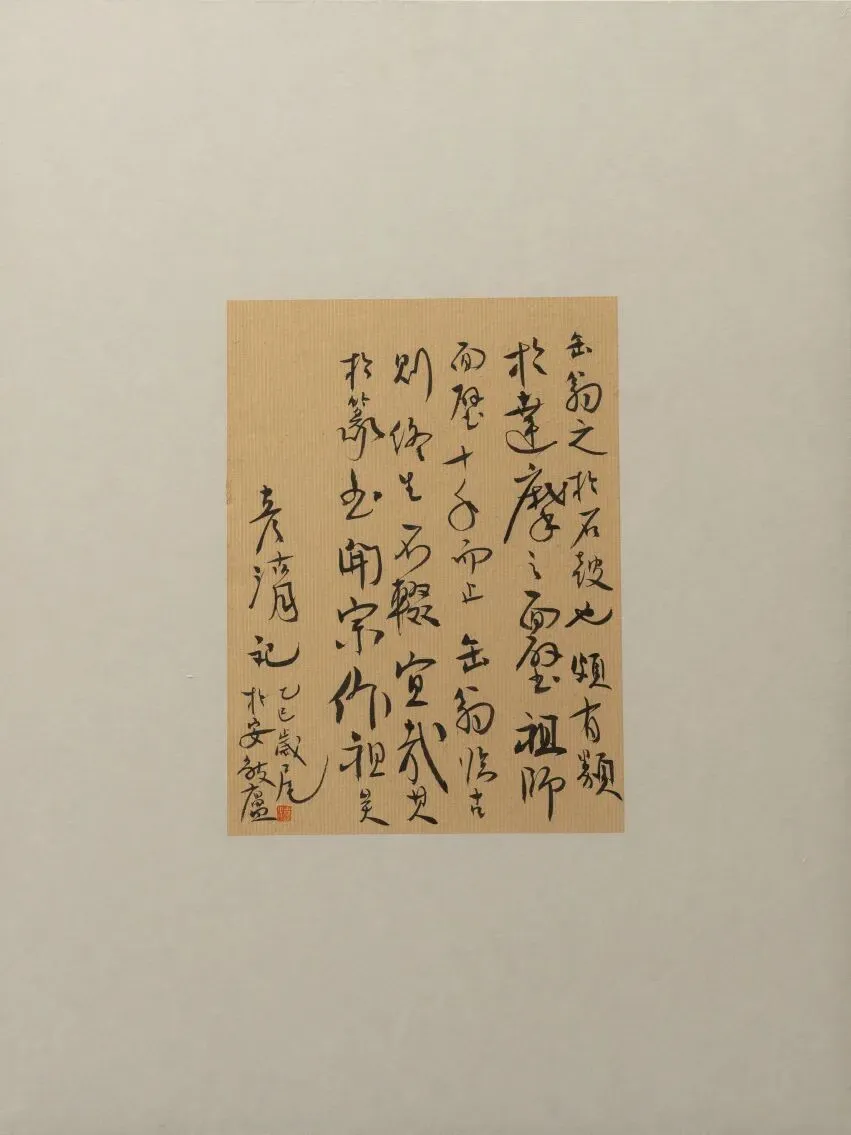 缶翁之於石鼓也頗有類
於達摩之面壁祖師
面壁十年而止缶翁臨古
則終生不輟宜哉其
於篆書開宗作祖矣
彥湑記
乙巳歲尾
於安敍廬